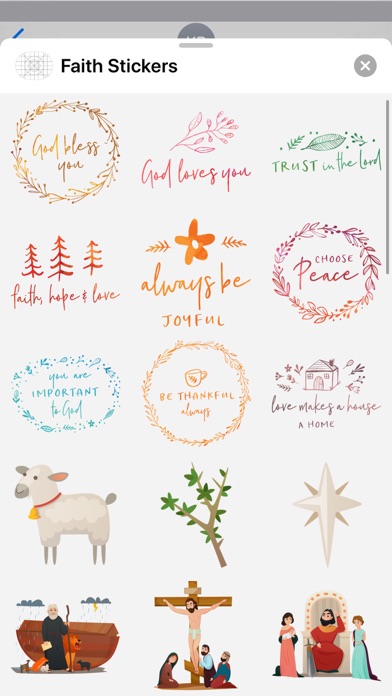 Faith Stickers
God bless
you
God loves you
TRUST in the Lord
faith, hope & love
always be
JOYFUL
CHOOSE
Peace
you are
IMPORTANT
to God
BE THANKFUL
always
love makes a house
A HOME